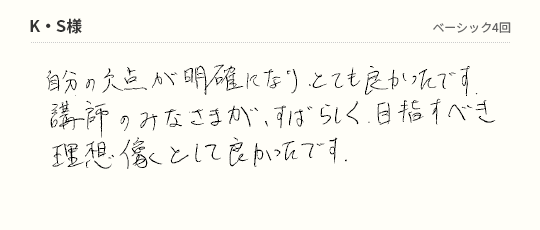 K・S様
ベーシック4回
自分の欠点が明確になり、とても良かったです。
講師のみなさまが、すばらしく、目指すべき
理想像として良かったです。